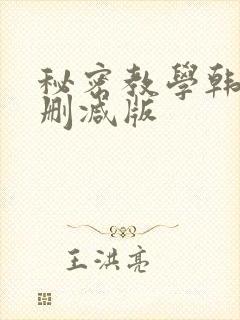 秘密教學韩
删减版
王洪亮